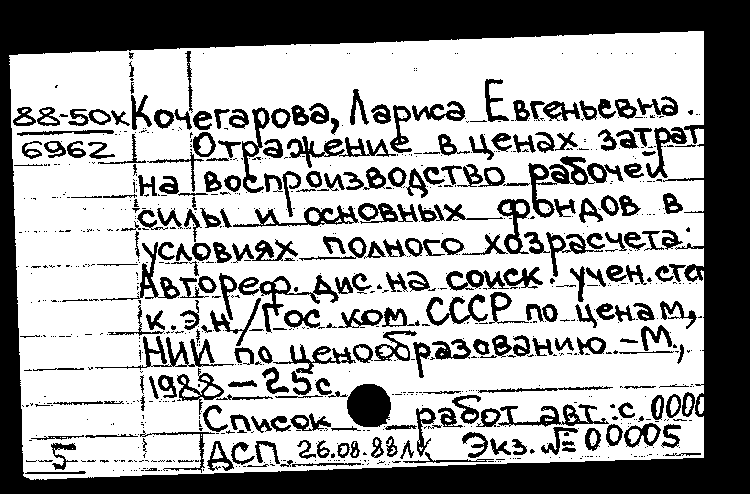 88-50к Кочегарова, Лариса Евгеньевна.
6962 Отражение в ценах затрат
на воспроизводство рабочей
силы и основных фондов в
условиях полного хозрасчета:
Автореф. дис. на соиск. учен. степ
к.э.н. / Гос. ком. СССР по ценам,
НИИ по ценообразованию. – М.,
1988. – 25 с.
Список работ авт.: с. 0000
5 ДСП. 26.08.88 Экз. № 00005